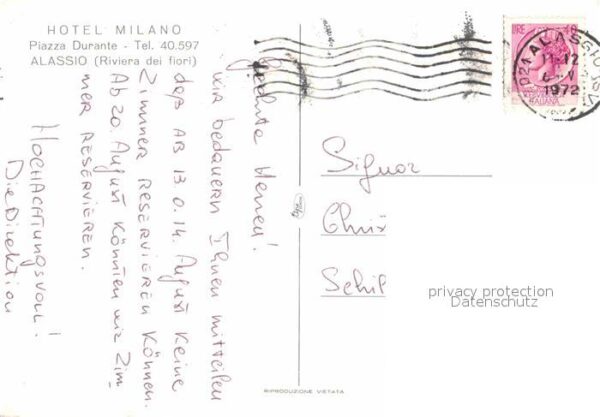 HOTEL MILANO
Piazza Durante - Tel. 40.597
ALASSIO (Riviera dei fiori)
Geehrte Herren!
wir bedauern Ihnen mitteilen
daß AB 13 o. 14. August Keine
Zimmer RESERVIEREN Können.
Ab 20. August Könnten wir Zim
mer RESERVIEREN.
HOCHACHTUNGSVOLL!
Die Direktion
LIRE
ITALIANA
ALASSIO
1972
Signor
Chris
Schil
privacy protection
Datenschutz
RIPRODUZIONE VIETATA